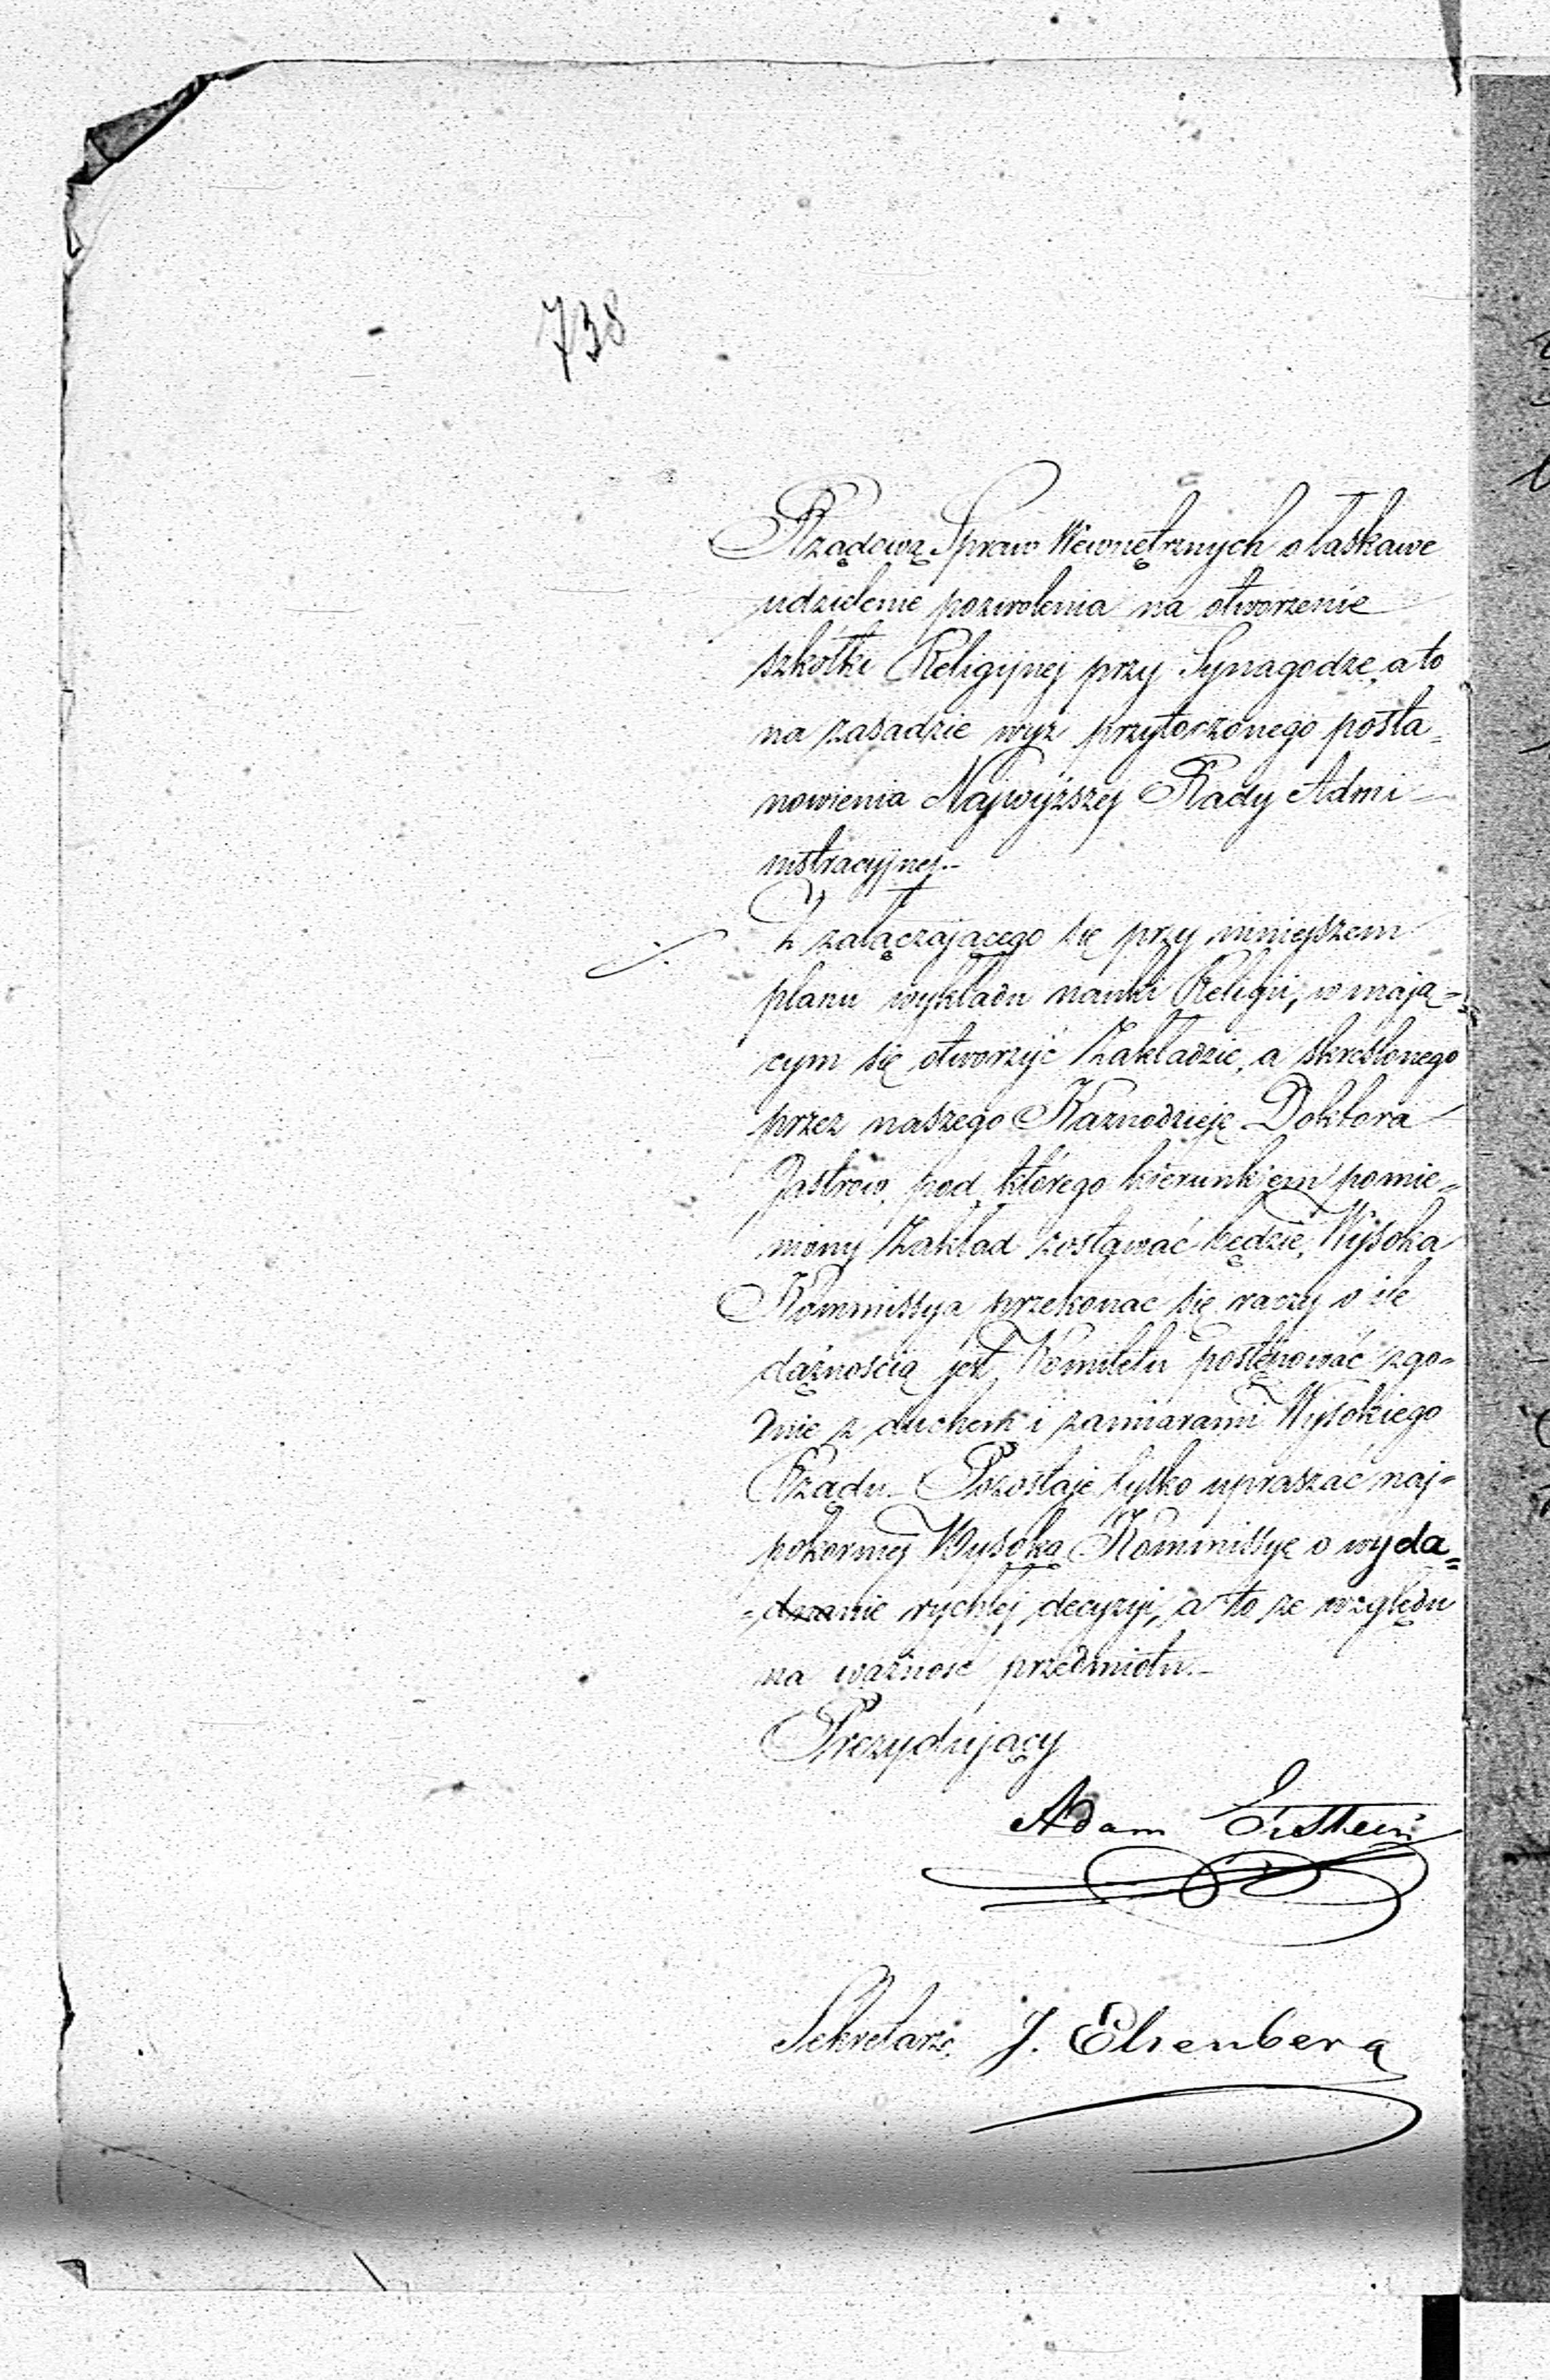 738
Rządową Spraw Wewnętrznych o łaskawe
udzielenie pozwolenia na otworzenie
szkółki Religijnej przy Synagodze, a to
na zasadzie wyż przytoczonego posta=
nowienia Najwyższej Rady Admi=
nistracyjnej.-
Z załączającego się przy niniejszem
planu wykładu nauki Religii, w mają=
cym się otworzyć Zakładzie, a skreślonego
przez naszego Kaznodzieję Doktora
Jastrow, pod którego kierunkiem pomie=
niony Zakład zostawać będzie, Wysoka
Kommissya przekonać się raczy o ile
dążnością jest Komitetu postępować zgo=
dnie z duchem i zamiarami Wysokiego
Rządu.- Pozostaje tylko upraszać naj=
pokorniej Wysoką Kommissyę o wyda=
=nie rychłej decyzyi, a to ze względu
na ważność przedmiotu.-
Prezydujący
Adam
Sekretarz, J. Elsenberg